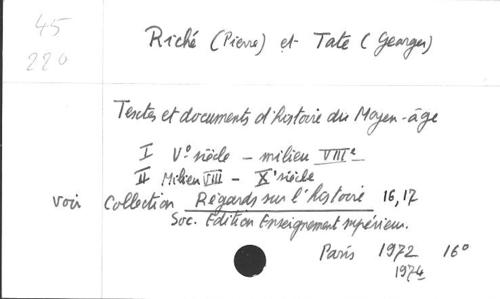 45
220
Riché (Pierre) et Tate (Georges)
Textes et documents d'histoire du Moyen-âge
I V° siècle - milieu VIIIe
II Milieu VIII - X° siècle
voir Collection Regards sur l'histoire 16, 17
Soc. Edition Enseignement supérieur.
Paris 1972 16°
1974